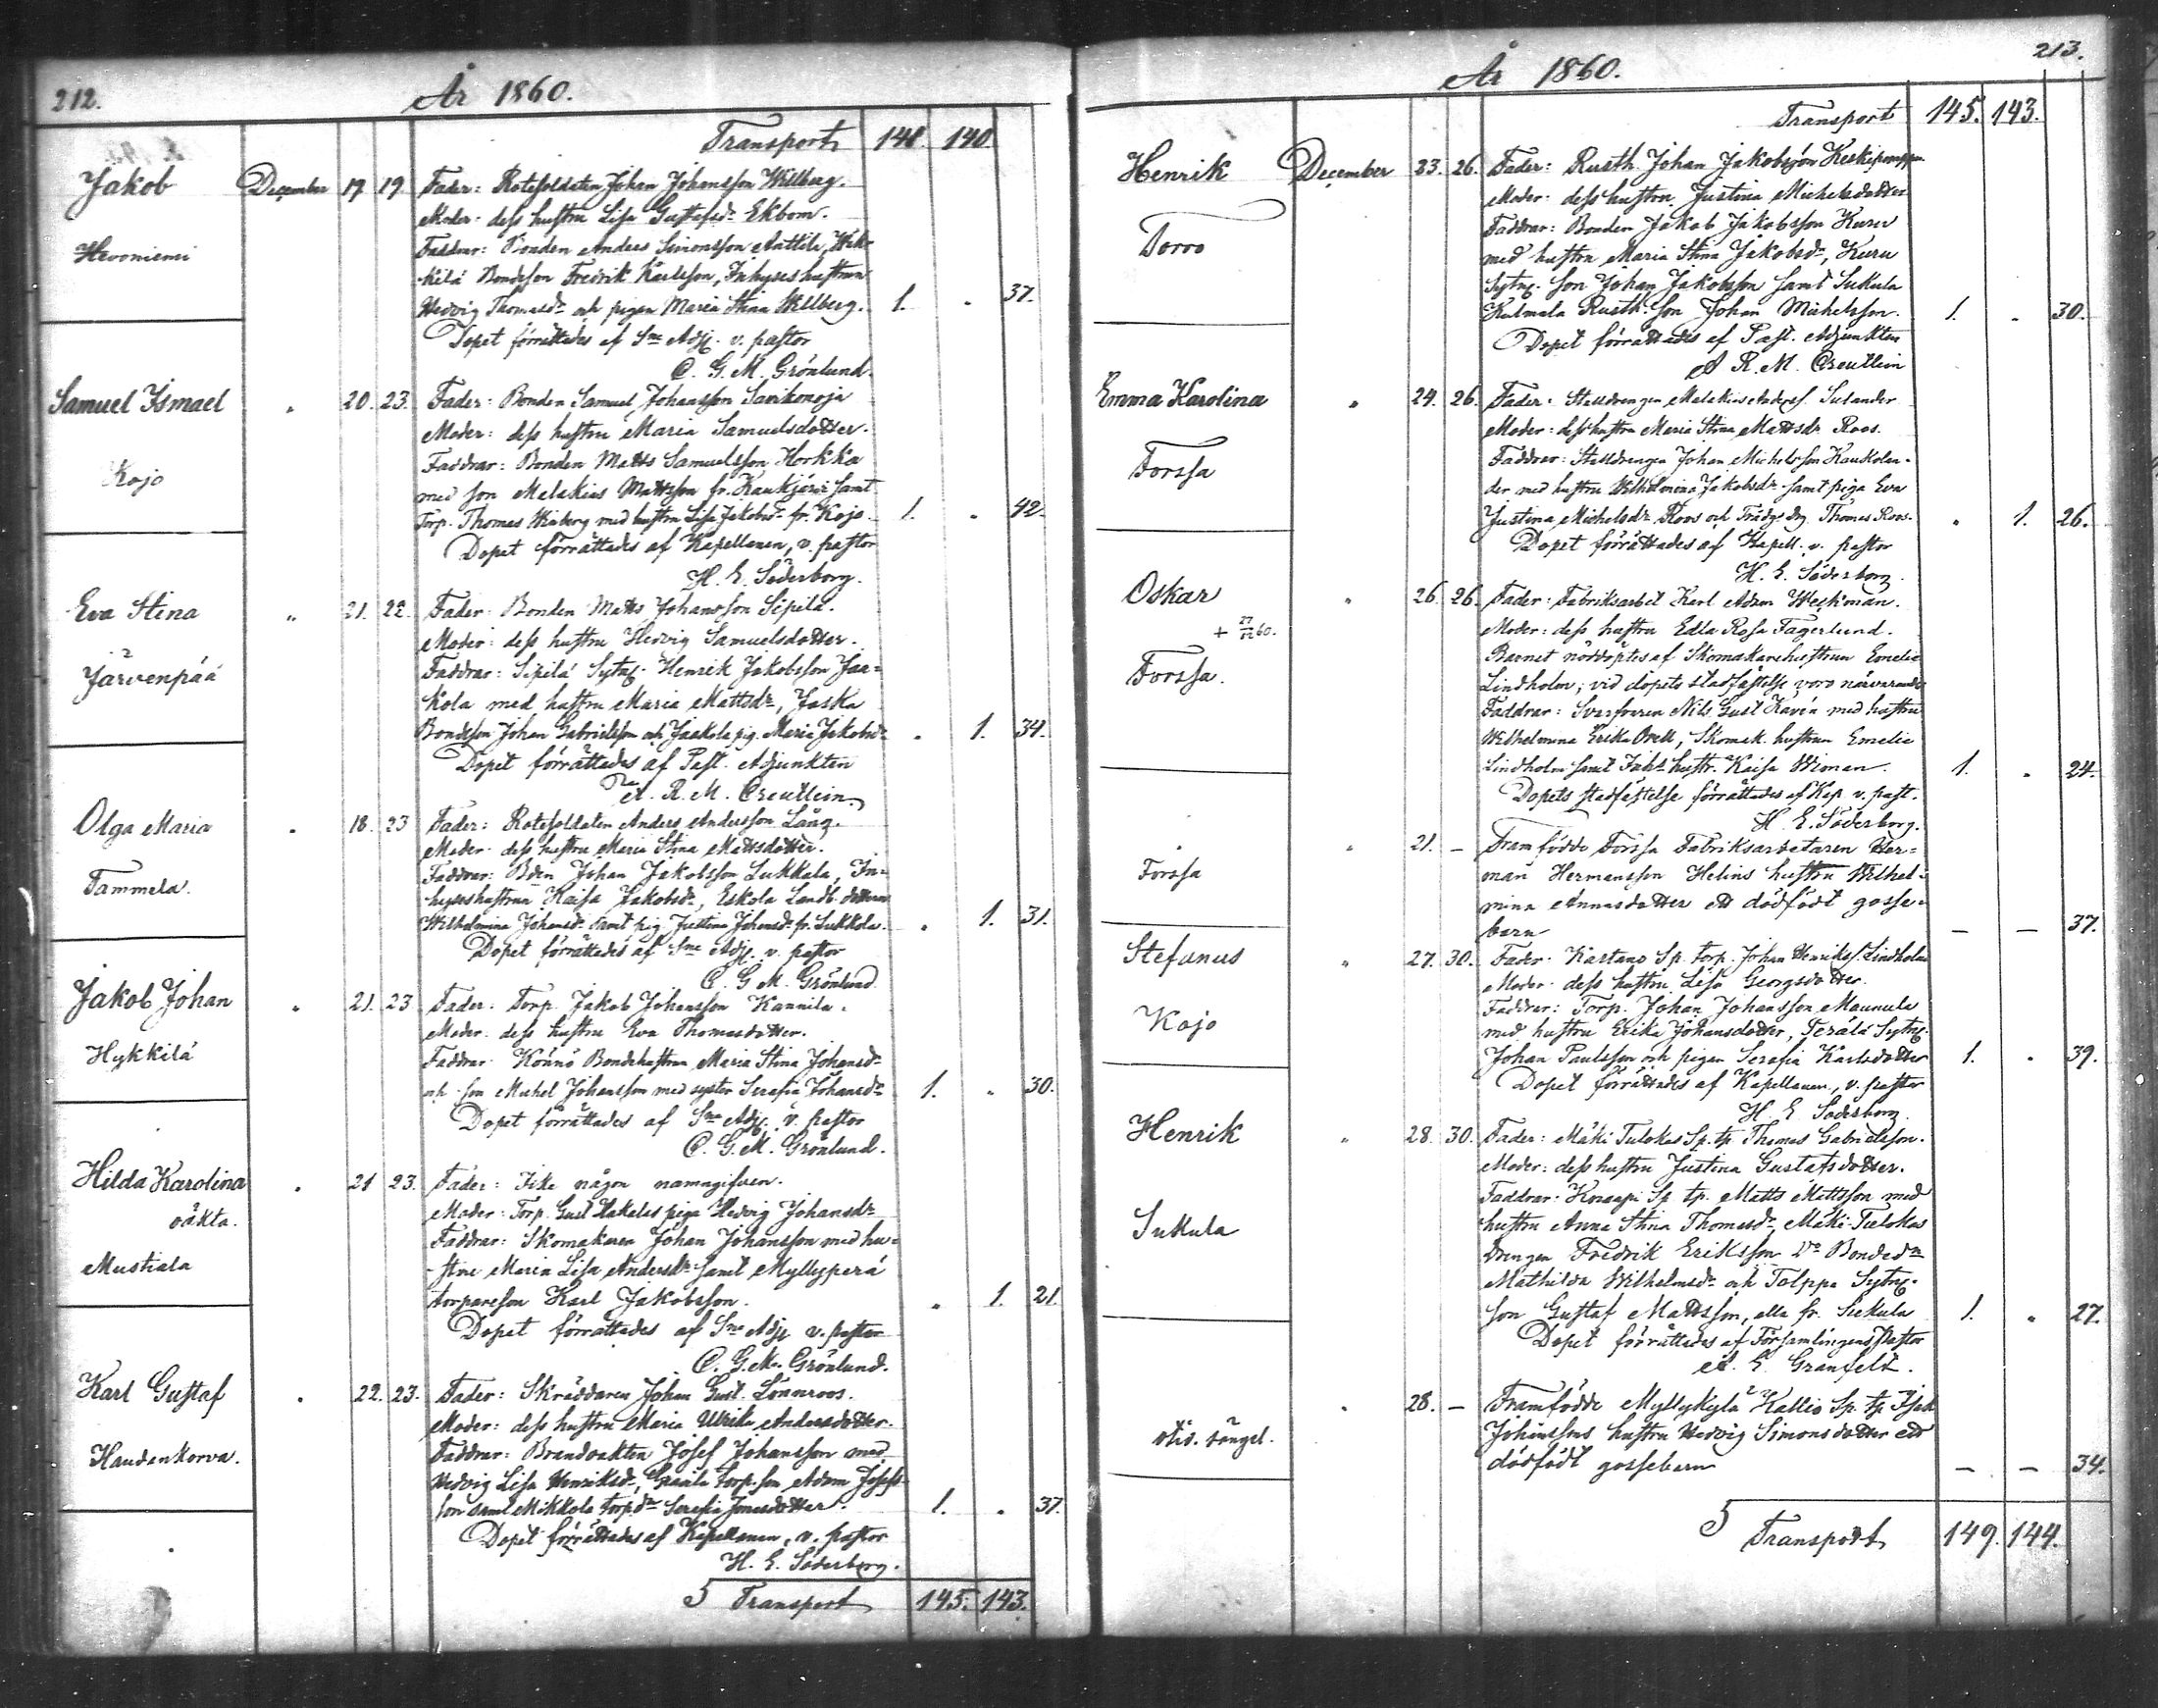 212.
År 1860.
Transport 140
Jakob December 17 19 Fader: Rotesoldaten Johan Johansson Willberg.
Moder: dess hustru Lisa Gustafsd:r Ekbom.
Hevoniemi
Faddrar: Bonden Anders Simonsson Anttila,
kilä Bondeson Fredrik Karlsson, Inhyseshustrun
Hedvig Thomasd:r och pigan Maria Stina Willberg. 1. " 37.
Dopet förrättades af S:ne Adj. v. pastor
C. G. M. Grönlund.
Samuel Ismael " 20. 23. Fader: Bonden Samuel Johansson Savikonoja
Moder: dess hustru Maria Samuelsdotter.
Faddrar: Bonden Matts Samuelsson Horkka
Kojo
med son Melakias Mattsson fr. Kaukjärvi samt
Torp. Thomas Winberg med hustru Lisa Jakobsd:r fr. Kojo. 1. " 42.
Dopet förrättades af Kapellanen, v. pastor
H. E. Söderborg.
Eva Stina " 21. 22. Fader: Bonden Matts Johansson Sipilä.
Moder: dess hustru Hedvig Samuelsdotter.
Järvenpää
Faddrar: Sipilä Sytng. Henrik Jakobsson Jaa=
kola med hustru Maria Mattsd:r, Jaska
Bondeson Johan Gabrielsson och Jaakola pig. Maria Jakobsd:r " 1. 34.
Dopet förrättades af Past. Adjunkten
A. R. M. Creutlein.
Olga Maria " 18. 23 Fader: Rotesoldaten Anders Andersson Lång.
Moder: dess hustru Maria Stina Mattsdotter.
Tammela.
Faddrar: Bden Johan Jakobsson Lukkala, In=
hyseshustrun Kaisa Jakobsd:r, Eskola Landb. dottern
Wilhelmina Johansd:r samt pig. Justina Johansd:r fr. Lukkola. " 1. 31.
Dopet förrättades af S:ne Adj. v. pastor
C. G. M. Grönlund
Jakob Johan " 21. 23 Fader: Torp. Jakob Johansson Kannila.
Moder: dess hustru Eva Thomasdotter.
Hykkilä
Faddrar: Könnö Bondehustrun Maria Stina Johansd:r
och son Michel Johansson med syster Serafia Johansd:r 1. " 30.
Dopet förrättades af S:ne Adj. v. pastor
C. G. M. Grönlund.
Hilda Karolina " 21 23. Fader: Icke någon namngifven.
oäkta.
Moder: Torp. Gust. Hakalas piga Hedvig Johansd:r
Faddrar: Skomakaren Johan Johansson med hu=
Mustiala
stru Maria Lisa Andersd:r samt Myllyperä
torpareson Karl Jakobsson. " 1. 21.
Dopet förrättades af S:ne Adj. v. pastor
C. G. M. Grönlund.
Karl Gustaf " 22. 23. Fader: Skräddaren Johan Gust. Lönnroos.
Moder: dess hustru Maria Ulrika Andersdotter.
Haudankorva.
Faddrar: Brandvakten Josef Johansson med
Hedvig Lisa Henriksd:r, torp.son Adam Josefs
son samt Mikkola torp.d:r Serafia Jonasdotter. 1. " 37.
Dopet förrättades af Kapellanen, v. pastor
H. E. Söderborg.
Transport 145. 143.
213.
År 1860.
Transport 145. 143.
Henrik December 23. 26. Fader: Rusth. Johan Jakobsson
Moder: dess hustru Justina Michelsdotter
Torro
Faddrar: Bonden Jakob Jakobsson Kuru
med hustru Maria Stina Jakobsd:r, Kuru
Sytng. son Johan Jakobsson samt Sukula
Kulmala Rusth. son Johan Michelsson. 1. " 30.
Dopet förrättades af Past. Adjunkten
A. R. M. Creutlein
Emma Karolina " 24. 26. Fader: Stalldrengen Melakias Anders. Sulander
Moder: dess hustru Maria Stina Mattsdr Roos.
Forssa
Faddrar: Stalldrengen Johan Michelsson Kaukolen-
der med hustru Wilhelmina Jakobsdr samt piga Eva
Justina Michelsdr Roos och Trädg. dng. Thomas Roos. " 1. 26.
Dopet förrättades af Kapell. v. pastor
H. E. Söderborg.
Oskar " 26. 26. Fader: Fabriksarbet. Karl Adam Weckman.
+ 27/12 60.
Moder: dess hustru Edla Rosa Fagerlund.
Forssa.
Barnet nöddöptes af Skomakarehustrun Emelie
Lindholm; vid dopets stadfästelse voro närvarande
Faddrar: Svarfvaren Nils Gust. Kavén med hustru
Wilhelmina Erika Orell, Skomak. hustrun Emelie
Lindholm samt Inh:s hustr. Kaisa Wiman. 1. " 24.
Dopets stadfästelse förrättades af Kap. v. past.
H. E. Söderborg.
" 21. – Framfödde Forssa Fabriksarbetaren Her=
Forssa
man Hermansson Helins hustru Wilhel=
mina Annasdotter ett dödfödt gosse=
barn — — 37.
Stefanus " 27. 30. Fader: Kartano Sp. torp. Johan Henrikss. Lindholm
Moder: dess hustru Lisa Georgsdotter.
Kojo
Faddrar: Torp. Johan Johansson Maunula
med hustru Erika Johansdotter, Terälä Sytng.
Johan Paulsson och pigan Serafia Karlsdotter 1. " 39.
Dopet förrättades af Kapellanen, v. pastor
H. E. Söderborg.
Henrik " 28. 30. Fader: Mäki Tulokas Sp. tp. Thomas Gabrielsson.
Moder: dess hustru Justina Gustafsdotter.
Faddrar: Knaapi Sp. tp. Matts Mattsson med
Sukula
hustru Anna Stina Thomasd:r, Mäki-Tulokas
drengen Fredrik Eriksson D:o Bonded:r
Mathilda Wilhelmsd:r och Tolppa Sytng.
son Gustaf Mattsson, alla fr. Sukula 1. " 27.
Dopet förrättades af Församlingens Pastor
A. E. Granfelt.
" 28. – Framfödde Myllykylä Kallio Sp. tp. Isak
Johanssons hustru Hedvig Simonsdotter ett
dödfödt gossebarn — — 34.
Transport 149. 144.